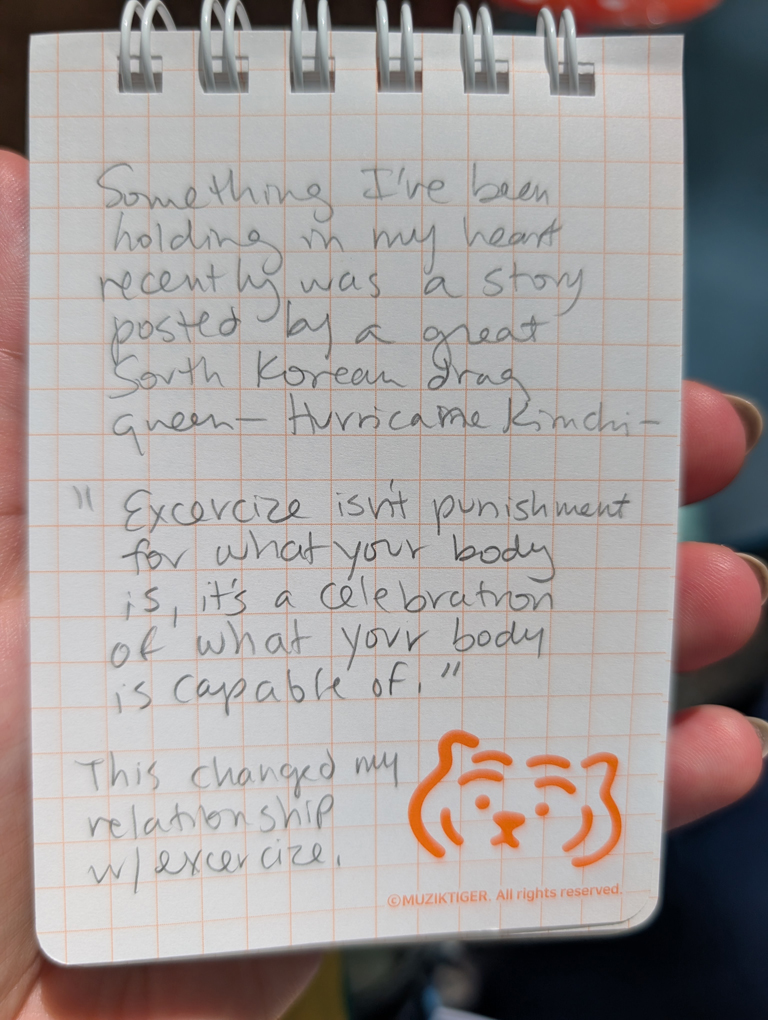 Something I've been
holding in my heart
recently was a story
posted by a great
South Korean drag
queen - Hurricane Kimchi -
" Excercize isn't punishment
for what your body
is, it's a celebration
of what your body
is capable of. "
This changed my
relationship
w/ excercize.
©MUZIKTIGER. All rights reserved.